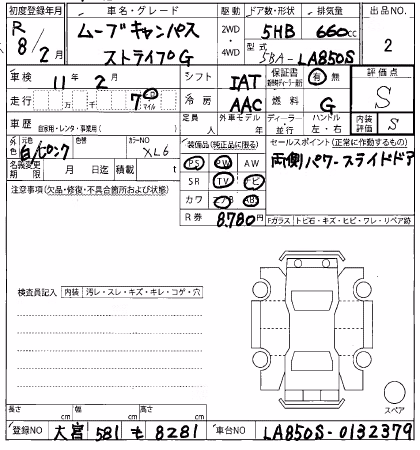 初度登録年月 車名・グレード 駆動 ドア数・形状 排気量 出品NO
R 8/2月 ムーブキャンバス ストライプG 2WD・4WD 5HB 660cc 2
型式 5BA-LA850S
車検 11年 2月 シフト IAT 保証書 有 無 評価点 S
走行 万 千 7 マイル 冷房 AAC 燃料 G
車歴 自家用・レンタ・事業用( ) 定員 人 外車モデル 年 ディーラー・並行 ハンドル 左・右 内装評価 S
外色 元色 白/ピンク 色替 カラーNO XL6
装備品(純正品に限る) セールスポイント(正常に作動するもの)
PS PW AW 両側パワースライドドア
名義変更期限 月 日迄 積載 t
SR TV ナビ
注意事項(欠品・修復・不具合箇所および状態)
カワ エアB ABS
R券 8,780円
Fガラス トビ石・キズ・ヒビ・ワレ・リペア跡
検査員記入 内装 汚レ・スレ・キズ・キレ・コゲ・穴
スペア
長さ cm 幅 cm 高さ cm
登録NO 大宮 581 も 8281 車台NO LA850S-0132379